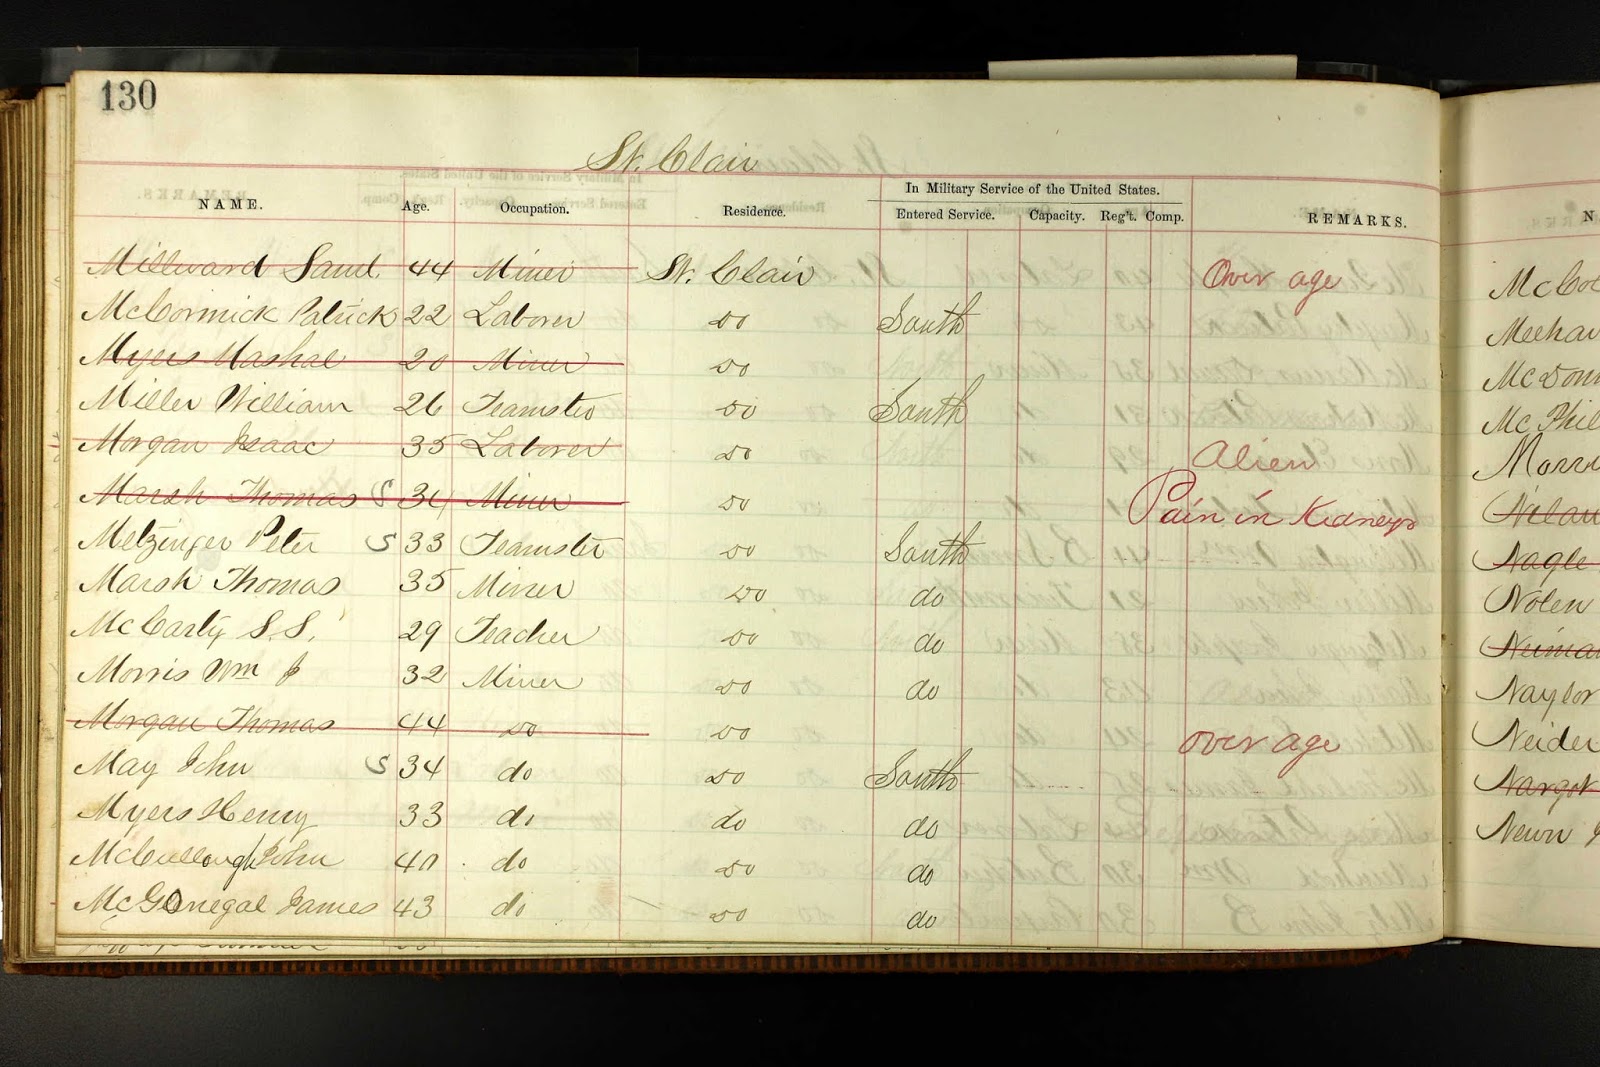 130
St. Clair
In Military Service of the United States.
NAME. Age. Occupation. Residence. Entered Service. Capacity. Reg't. Comp. REMARKS. N
Millward Saml. 44 Miner St. Clair Over age
McCormick Patrick 22 Laborer Do South
Myers Mashal 20 Miner Do
Miller William 26 Teamster Do South
Morgan Isaac 35 Laborer Do Alien
Marsh Thomas S Miner Do Pain in Kidneys
Metzinger Peter S 33 Teamster Do South
Marsh Thomas 35 Miner Do do
McCarty S. S. 29 Teacher Do do
Morris Wm J 32 Miner Do do
Morgan Thomas 44 Do Do over age
May John S 34 do Do South
Myers Henry 33 do do do
McCullough John 40 do Do do
McGonegal James 43 do Do do
McCol
Meehan
McDonn
McPhil
Morri
Nelan
Nagle
Nolen
Neiman
Naylor
Neider
Nargot
Newn